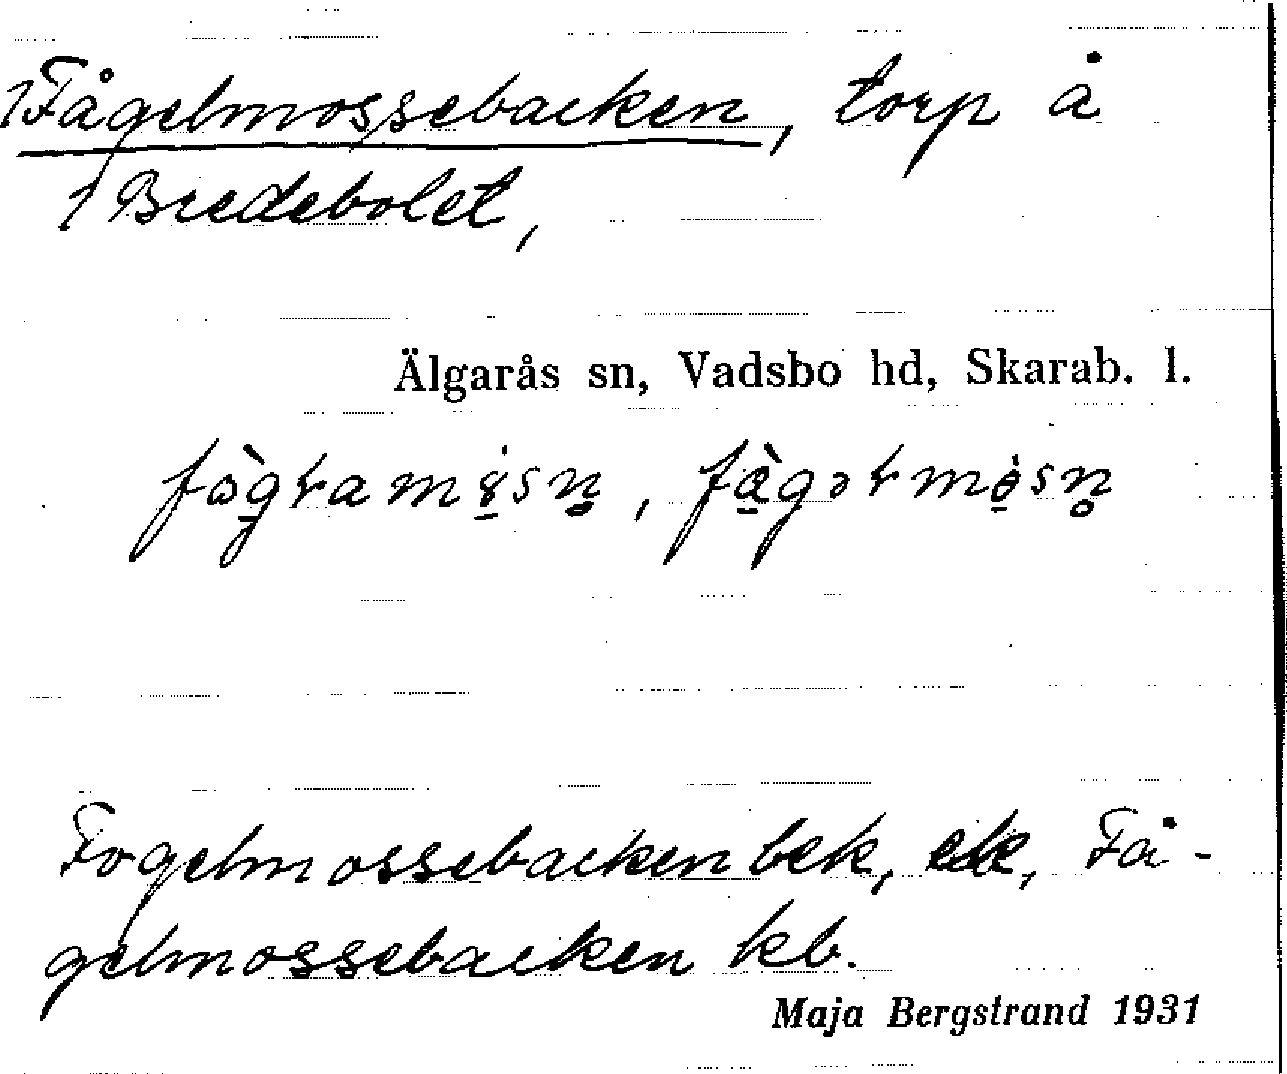 1Fågelmossebacken, torp å
1 Bredebolet,
Älgarås sn, Vadsbo hd, Skarab. l.
Fogelmossebacken bek, ek, Få-
gelmossebacken kb.
Maja Bergstrand 1931